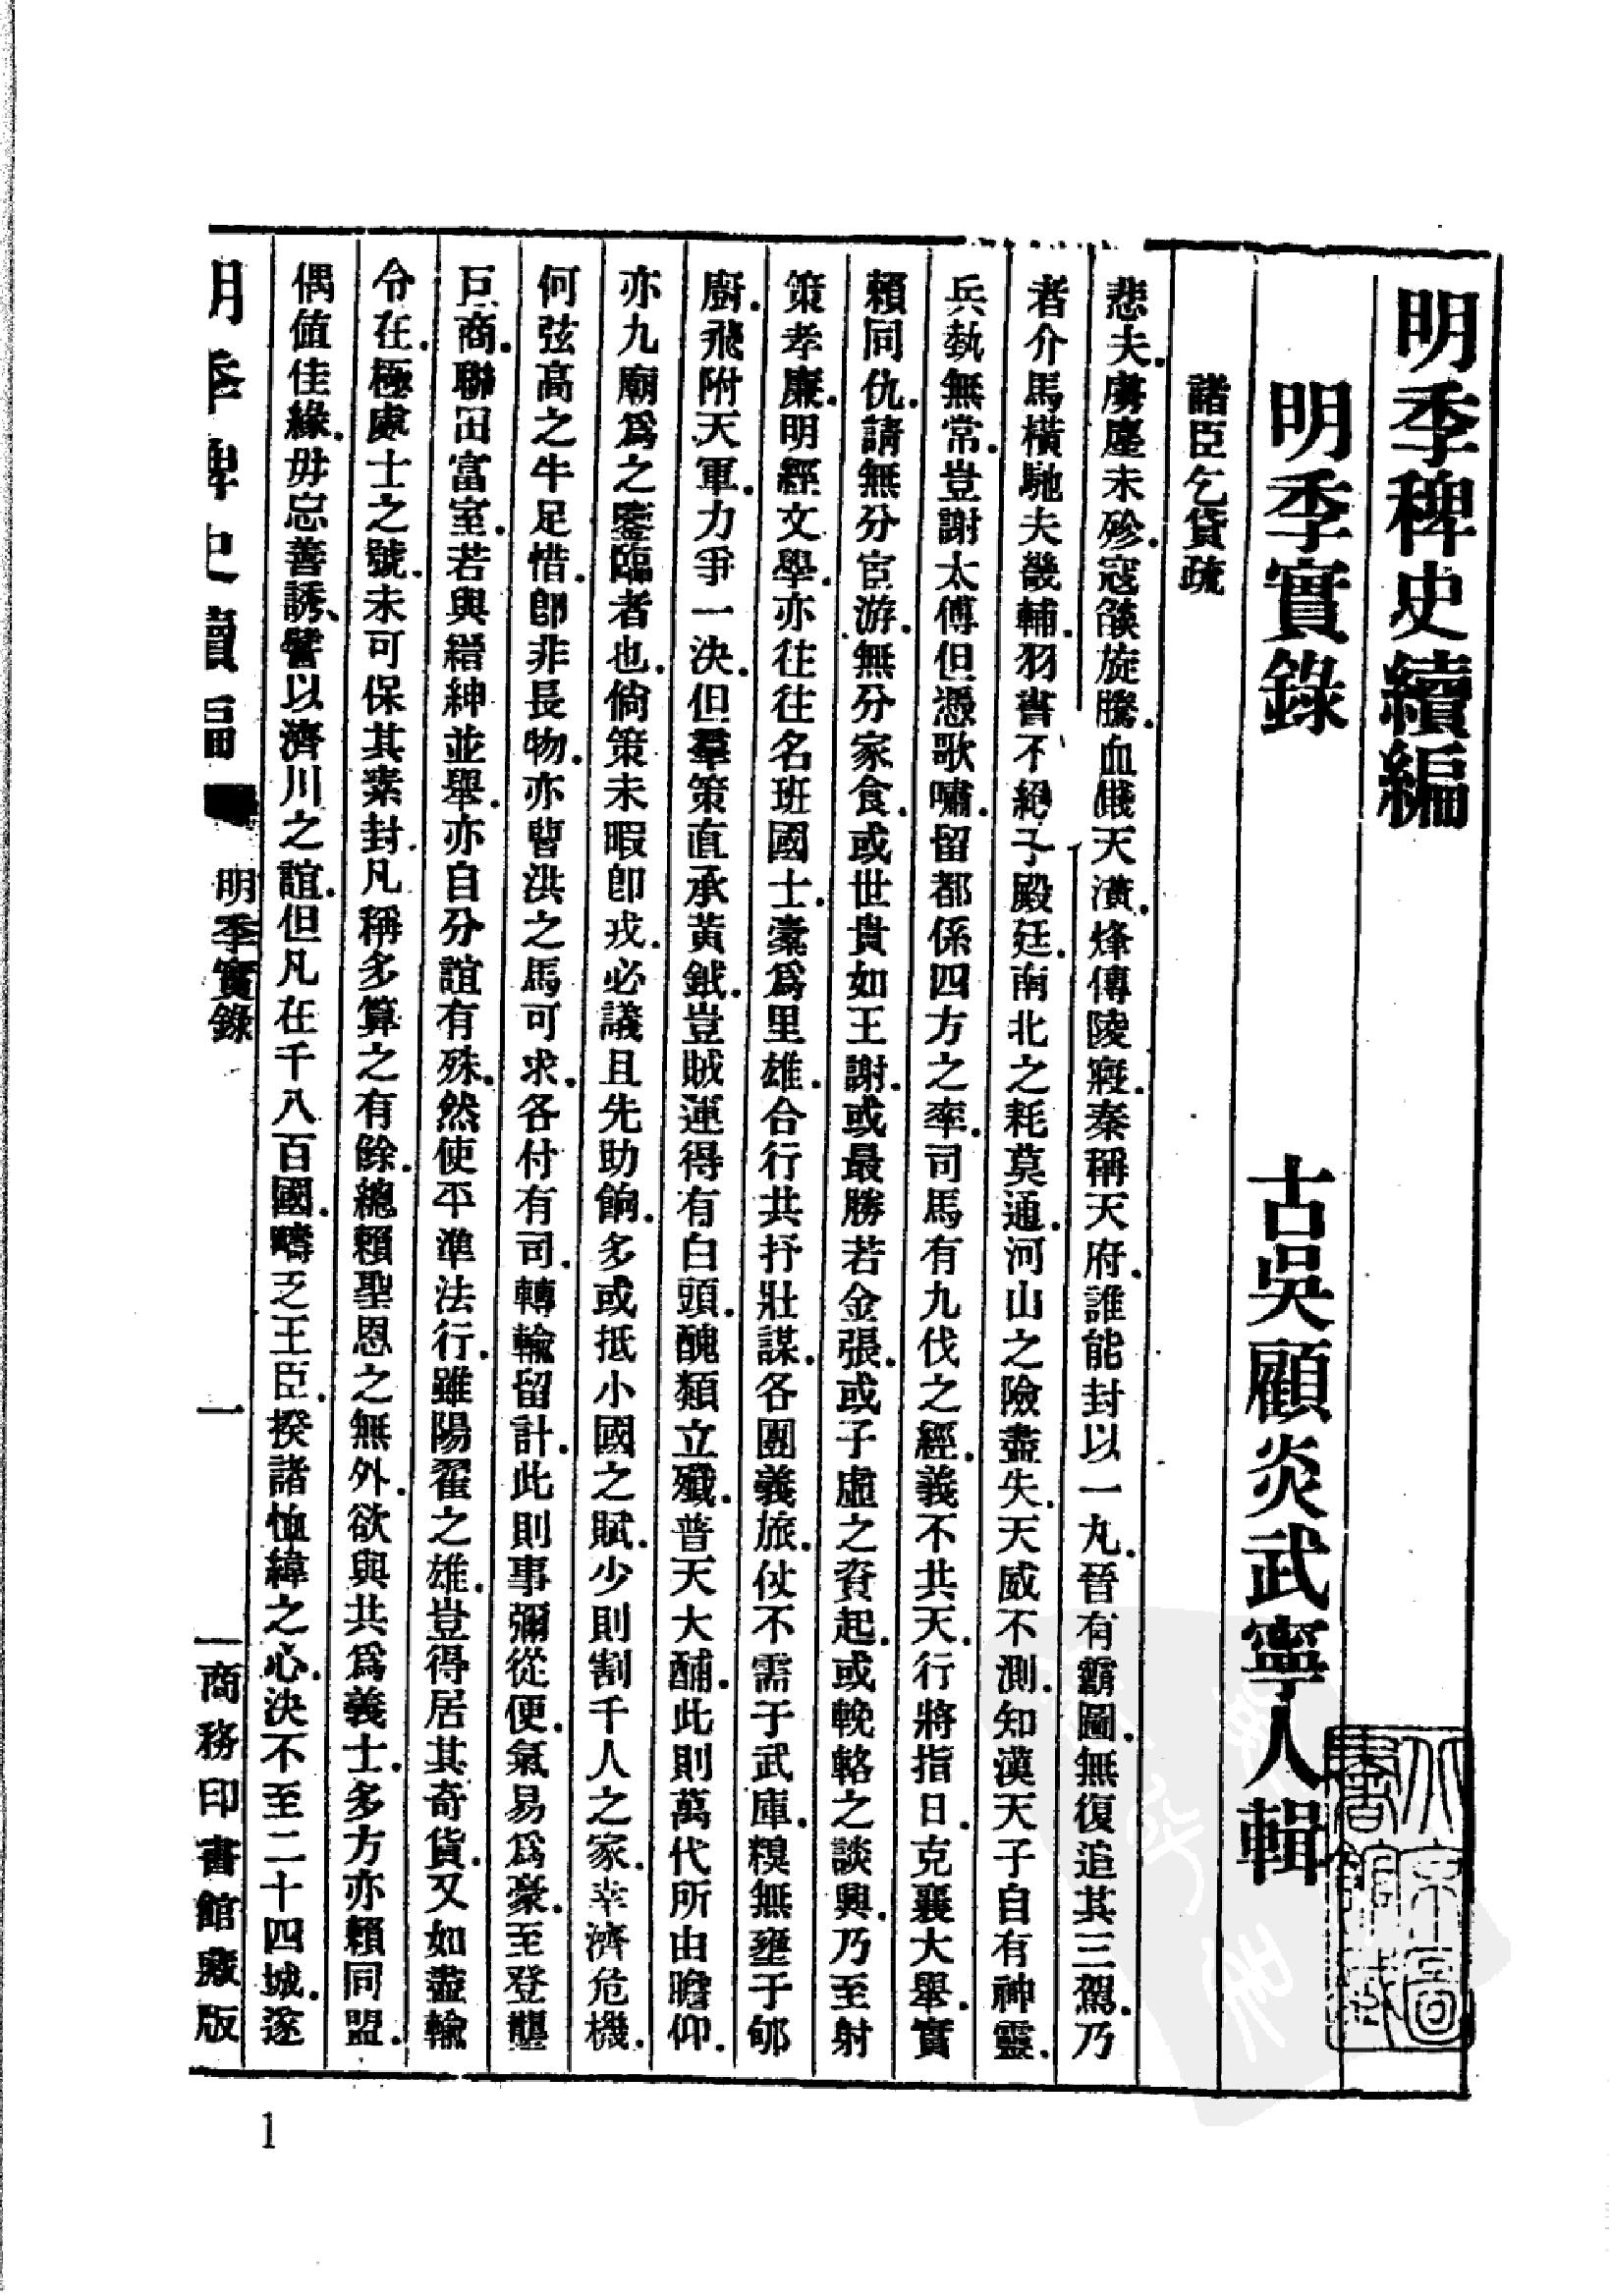 明季稗史續編
明季實錄
古吳顧炎武寧人輯
諸臣乞貸疏
悲夫.虜塵未殄.寇燄旋騰.血濺天潢.烽傳陵寢.秦稱天府.誰能封以一丸.晉有霸圖.無復追其三駕.乃
者介馬橫馳夫畿輔.羽書不絕于殿廷.南北之耗莫通.河山之險盡失.天威不測.知漢天子自有神靈.
兵埶無常.豈謝太傅但憑歌嘯.留都係四方之率.司馬有九伐之經.義不共天.行將指日.克襄大舉.實
賴同仇.請無分宦游.無分家食.或世貴如王謝.或最勝若金張.或子虛之貲起.或輓輅之談興.乃至射
策孝廉.明經文學.亦往往名班國士.橐爲里雄.合行共抒壯謀.各團義旅.仗不需于武庫.糗無壅于郇
廚.飛附天軍.力爭一決.但羣策直承黃鉞.豈賊運得有白頭.醜類立殲.普天大酺.此則萬代所由瞻仰.
亦九廟爲之鑒臨者也.倘策未暇卽戎.必議且先助餉.多或抵小國之賦.少則割千人之家.幸濟危機.
何弦高之牛足惜.卽非長物.亦曹洪之馬可求.各付有司.轉輸留計.此則事彌從便.氣易爲豪.至登壟
巨商.聯田富室.若與縉紳並舉.亦自分誼有殊.然使平準法行.雖陽翟之雄.豈得居其奇貨.又如盡輸
令在.極處士之號.未可保其素封.凡稱多算之有餘.總賴聖恩之無外.欲與共爲義士.多方亦賴同盟.
偶値佳緣.毋忘善誘.譬以濟川之誼.但凡在千八百國.疇乏王臣.揆諸恤緯之心.決不至二十四城.遂
明季稗史續編
明季實錄
一
商務印書館藏版
1